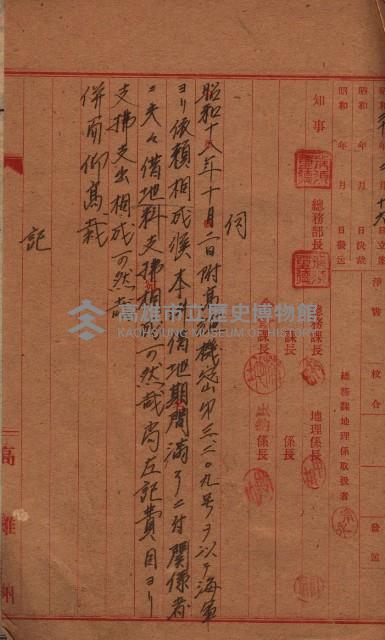 昭和 年 月 日決裁
昭和 年 月 日發送
淨書
校合
發送
總務課地理係取扱者
知事
總務部長
總務課長
地理係長
課長
係長
課長
出納係長
伺
昭和十八年十月二日附高地機密第三二〇九号ヲ以テ海軍
ヨリ依頼相成候本借地期間満了ニ付関係者
ニ夫々借地料支拂相成可然哉尚左記費目ヨリ
支拂支出相成可然哉
併而仰高裁
記
高雄州
高雄市立歷史博物館
KAOHSIUNG MUSEUM OF HISTORY